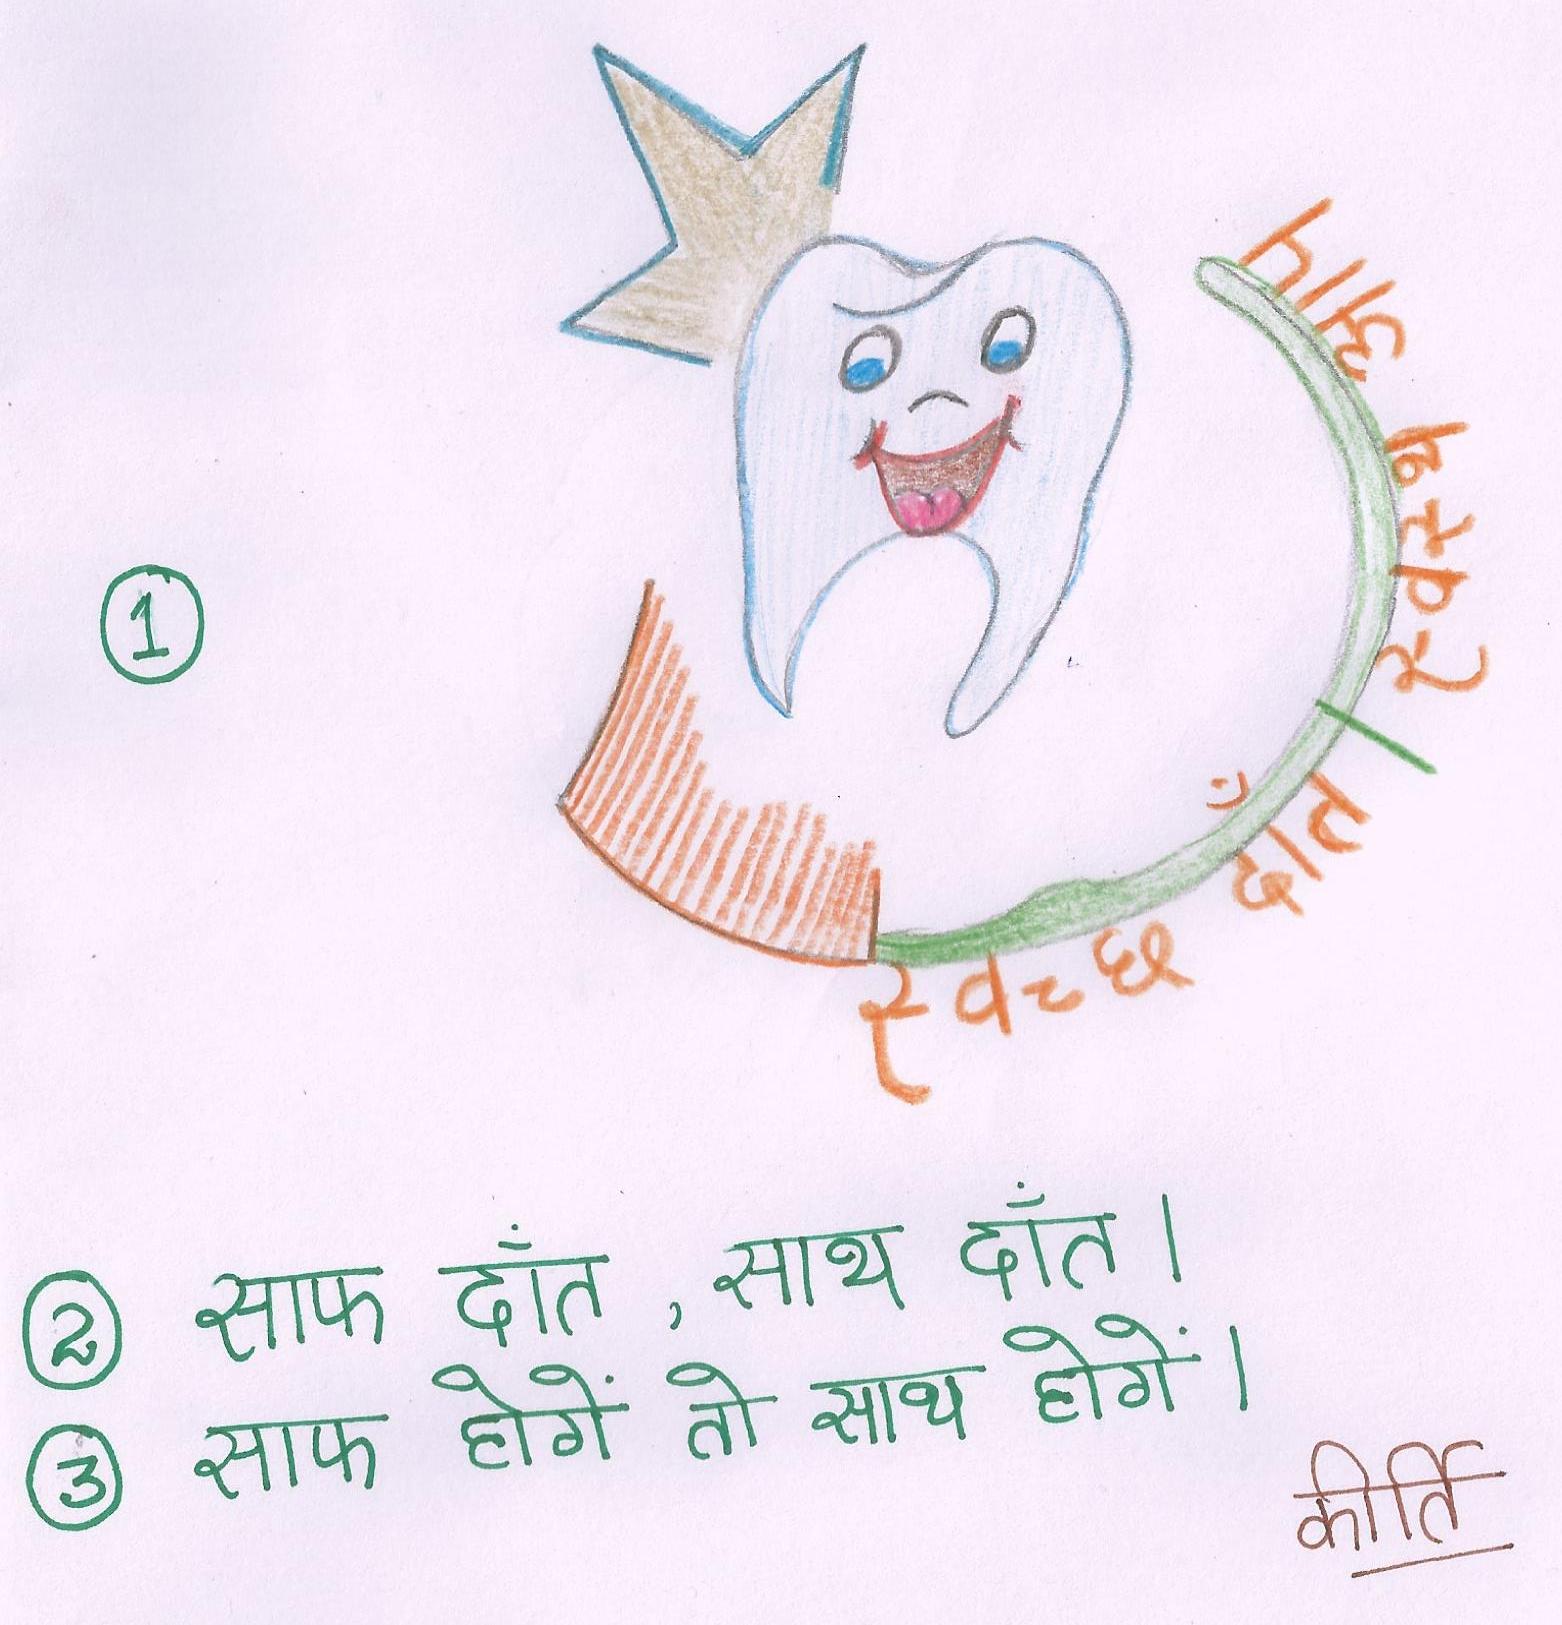 1
स्वच्छ दाँत । स्वस्थ आप
2 साफ दाँत , साथ दाँत ।
3 साफ होगें तो साथ होगें ।
कीर्ति